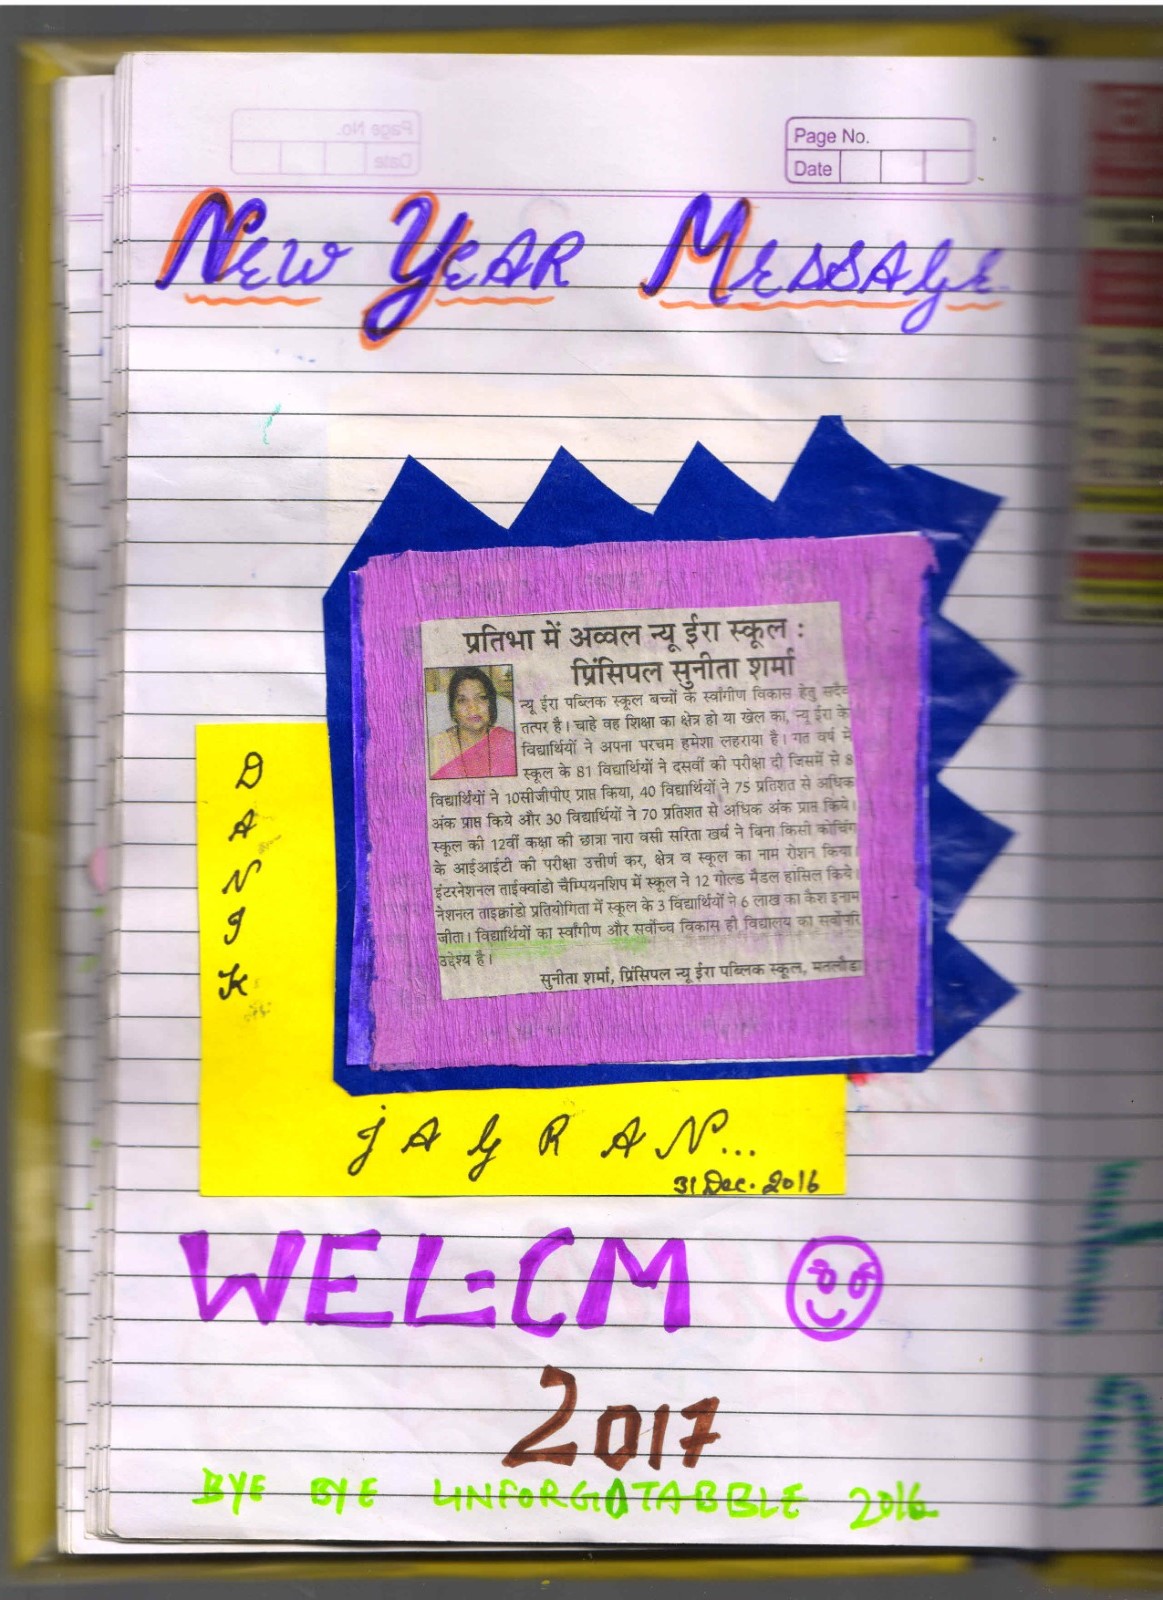 Page No.
Date
NEW YEAR MESSAGE
प्रतिभा में अव्वल न्यू ईरा स्कूल :
प्रिंसिपल सुनीता शर्मा
न्यू ईरा पब्लिक स्कूल बच्चों के स्वांगीण विकास हेतु सदैव
तत्पर है। चाहे वह शिक्षा का क्षेत्र हो या खेल का, न्यू ईरा के
विद्यार्थियों ने अपना परचम हमेशा लहराया है। गत वर्ष में
स्कूल के 81 विद्यार्थियों ने दसवीं की परीक्षा दी जिसमें से 8
विद्यार्थियों ने 10सीजीपीए प्राप्त किया, 40 विद्यार्थियों ने 75 प्रतिशत से अधिक
अंक प्राप्त किये और 30 विद्यार्थियों ने 70 प्रतिशत से अधिक अंक प्राप्त किये।
स्कूल की 12वीं कक्षा की छात्रा नारा वसी सरिता खर्व ने बिना किसी कोचिंग
के आईआईटी की परीक्षा उत्तीर्ण कर, क्षेत्र व स्कूल का नाम रोशन किया।
इंटरनेशनल ताईक्वांडो चैम्पियनशिप में स्कूल ने 12 गोल्ड मैडल हासिल किये।
नेशनल ताइक्वांडो प्रतियोगिता में स्कूल के 3 विद्यार्थियों ने 6 लाख का कैश इनाम
जीता। विद्यार्थियों का स्वांगीण और सर्वोच्च विकास ही विद्यालय का सर्वोपरि
उद्देश्य है।
सुनीता शर्मा, प्रिंसिपल न्यू ईरा पब्लिक स्कूल, मतलौडा
DANIK
JAGRAN...
31 Dec. 2016
WEL=CM
2017
BYE BYE UNFORGOTABBLE 2016